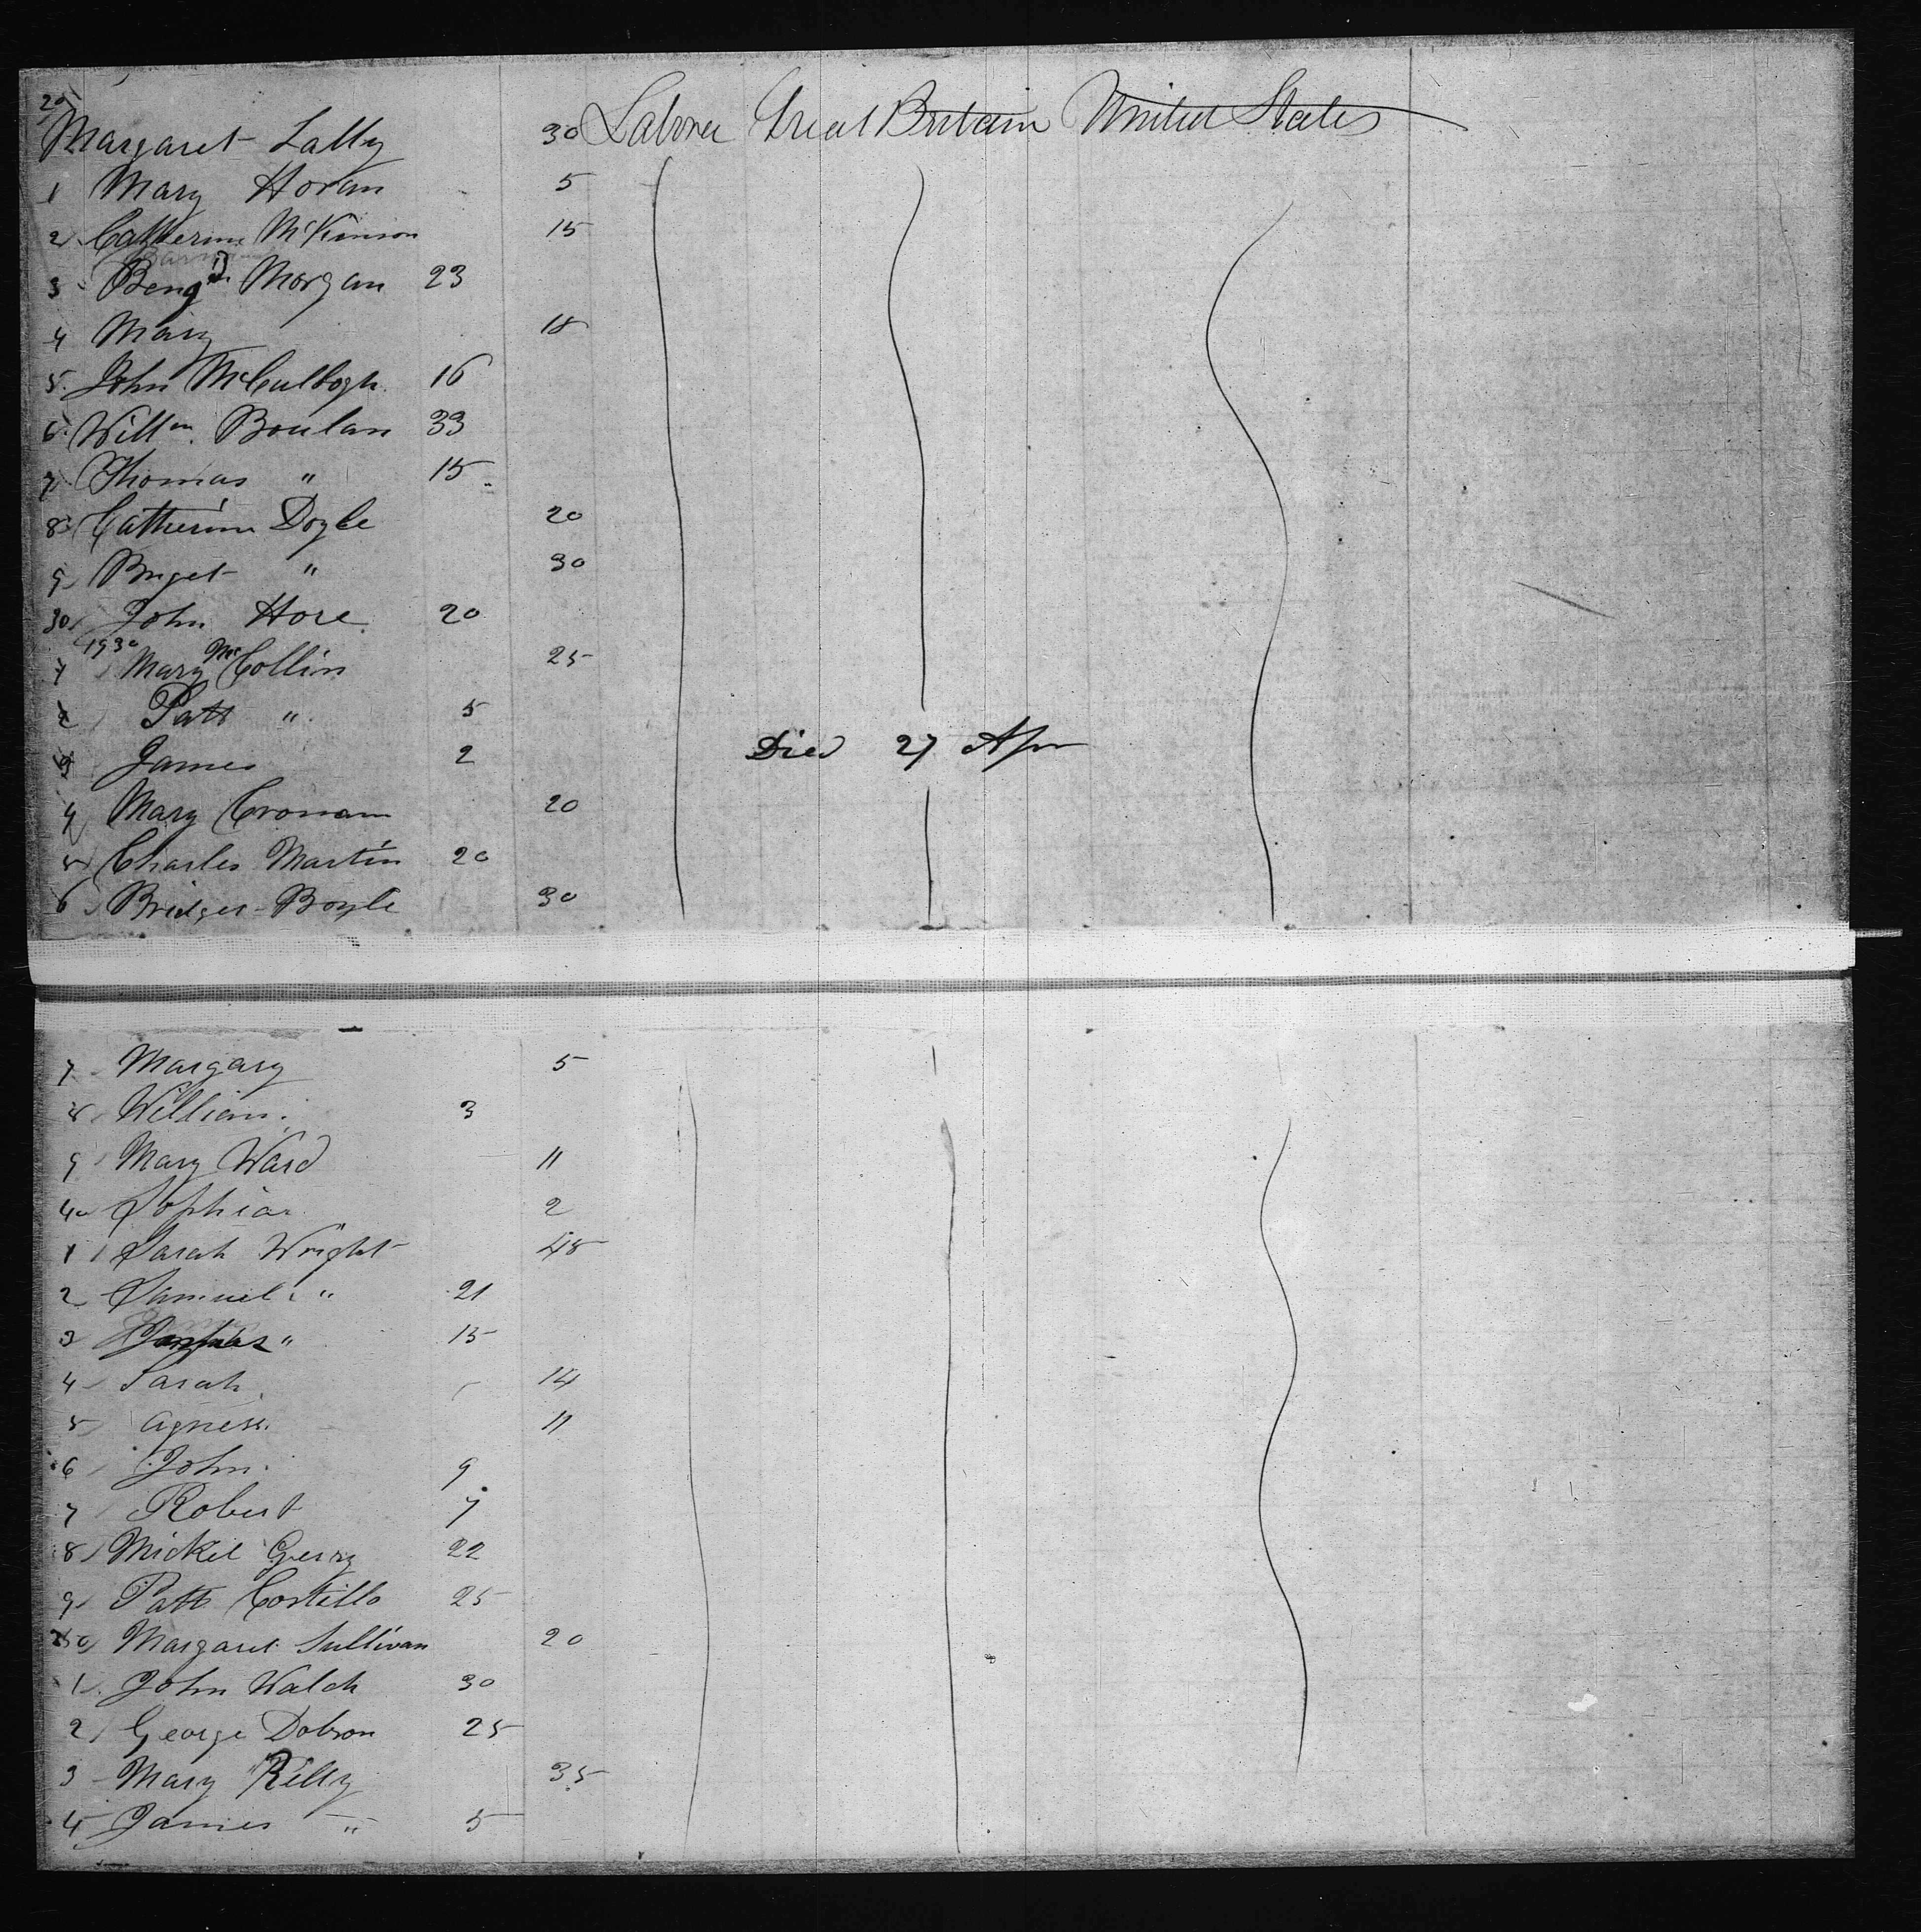 20
Margaret Lally 30 Laborer Great Britain United States
1 Mary Horan 5
2 Catherine McKinson 15
3 Benjn Morgan 23
4 Mary 18
5 John McCullogh 16
6 Willm. Boulan 33
7 Thomas " 15
8 Catherine Doyle 20
9 Briget " 30
30 John Hore 20
1930
1 Mary Mc Collin 25
2 Patt " 5
3 James 2 Died 27 Apr
4 Mary Cronam 20
5 Charles Martin 20
6 Bridget Boyle 30
7 Margary 5
8 William 3
9 Mary Ward 11
40 Sophiar 2
1 Sarah Wright 48
2 Samuel " 21
3 " 15
4 Sarah 14
5 Agness 11
6 John 9
7 Robert 7
8 Mickel Gerry 22
9 Patt Costillo 25
250 Margaret Sullivan 20
1 John Walch 30
2 George Dobson 25
3 Mary Killy 35
4 James " 5